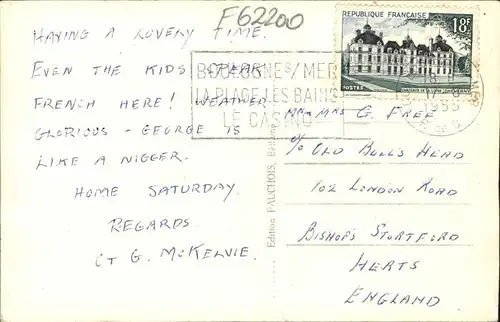 F62200
HAVING A LOVELY TIME.
EVEN THE KIDS SPEAK
FRENCH HERE! WEATHER
GLORIOUS - GEORGE IS
LIKE A NIGGER.
HOME SATURDAY.
REGARDS
C+ G. McKELVIE.
BOULOGNE S/MER
LA PLAGE LES BAINS
LE CASINO
REPUBLIQUE FRANÇAISE
18F
POSTES
1955
Edition FAUCHOIS,
MR. MRS G. FREE
C/O OLD BULL'S HEAD
102 LONDON ROAD
BISHOP'S STORTFORD
HERTS
ENGLAND